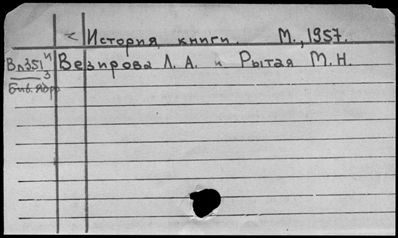 < История книги. М., 1957.
Вл351 и/3 Везирова Л. А. и Рытая М. Н.
Биб. ядро